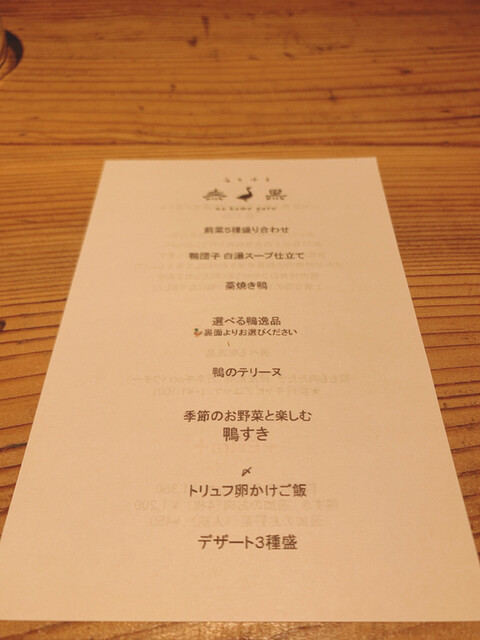 前菜5種盛り合わせ
鴨団子 白湯スープ仕立て
藁焼き鴨
選べる鴨逸品
裏面よりお選びください
鴨のテリーヌ
季節のお野菜と楽しむ
鴨すき
〆
トリュフ卵かけご飯
デザート3種盛